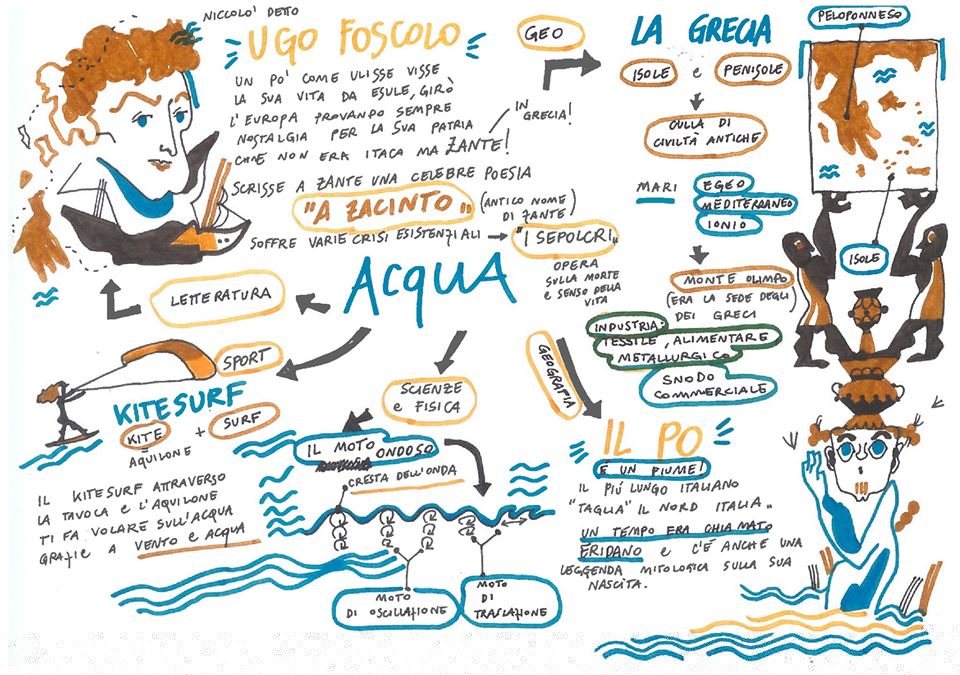 NICCOLO' DETTO
UGO FOSCOLO
UN PO' COME ULISSE VISSE
LA SUA VITA DA ESULE, GIRÒ
L'EUROPA PROVANDO SEMPRE
NOSTALGIA PER LA SUA PATRIA
CHE NON ERA ITACA MA ZANTE!
IN
GRECIA!
SCRISSE A ZANTE UNA CELEBRE POESIA
"A ZACINTO"
(ANTICO NOME
DI ZANTE)
SOFFRE VARIE CRISI ESISTENZIALI
"I SEPOLCRI"
OPERA
SULLA MORTE
E SENSO DELLA
VITA
GEO
LA GRECIA
ISOLE e PENISOLE
CULLA DI
CIVILTÀ ANTICHE
MARI
EGEO
MEDITERRANEO
IONIO
MONTE OLIMPO
(ERA LA SEDE DEGLI
DEI GRECI)
INDUSTRIA:
TESSILE, ALIMENTARE
METALLURGICO
SNODO
COMMERCIALE
PELOPONNESO
ISOLE
ACQUA
LETTERATURA
SPORT
KITESURF
KITE + SURF
AQUILONE
IL KITESURF ATTRAVERSO
LA TAVOLA E L'AQUILONE
TI FA VOLARE SULL'ACQUA
GRAZIE A VENTO e ACQUA
SCIENZE
e FISICA
IL MOTO ONDOSO
CRESTA DELL'ONDA
MOTO
DI OSCILLAZIONE
MOTO
DI
TRASLAZIONE
GEOGRAFIA
IL PO
E UN FIUME!
IL PIÚ LUNGO ITALIANO
"TAGLIA" IL NORD ITALIA.
UN TEMPO ERA CHIAMATO
ERIDANO e C'È ANCHE UNA
LEGGENDA MITOLOGICA SULLA SUA
NASCITA.